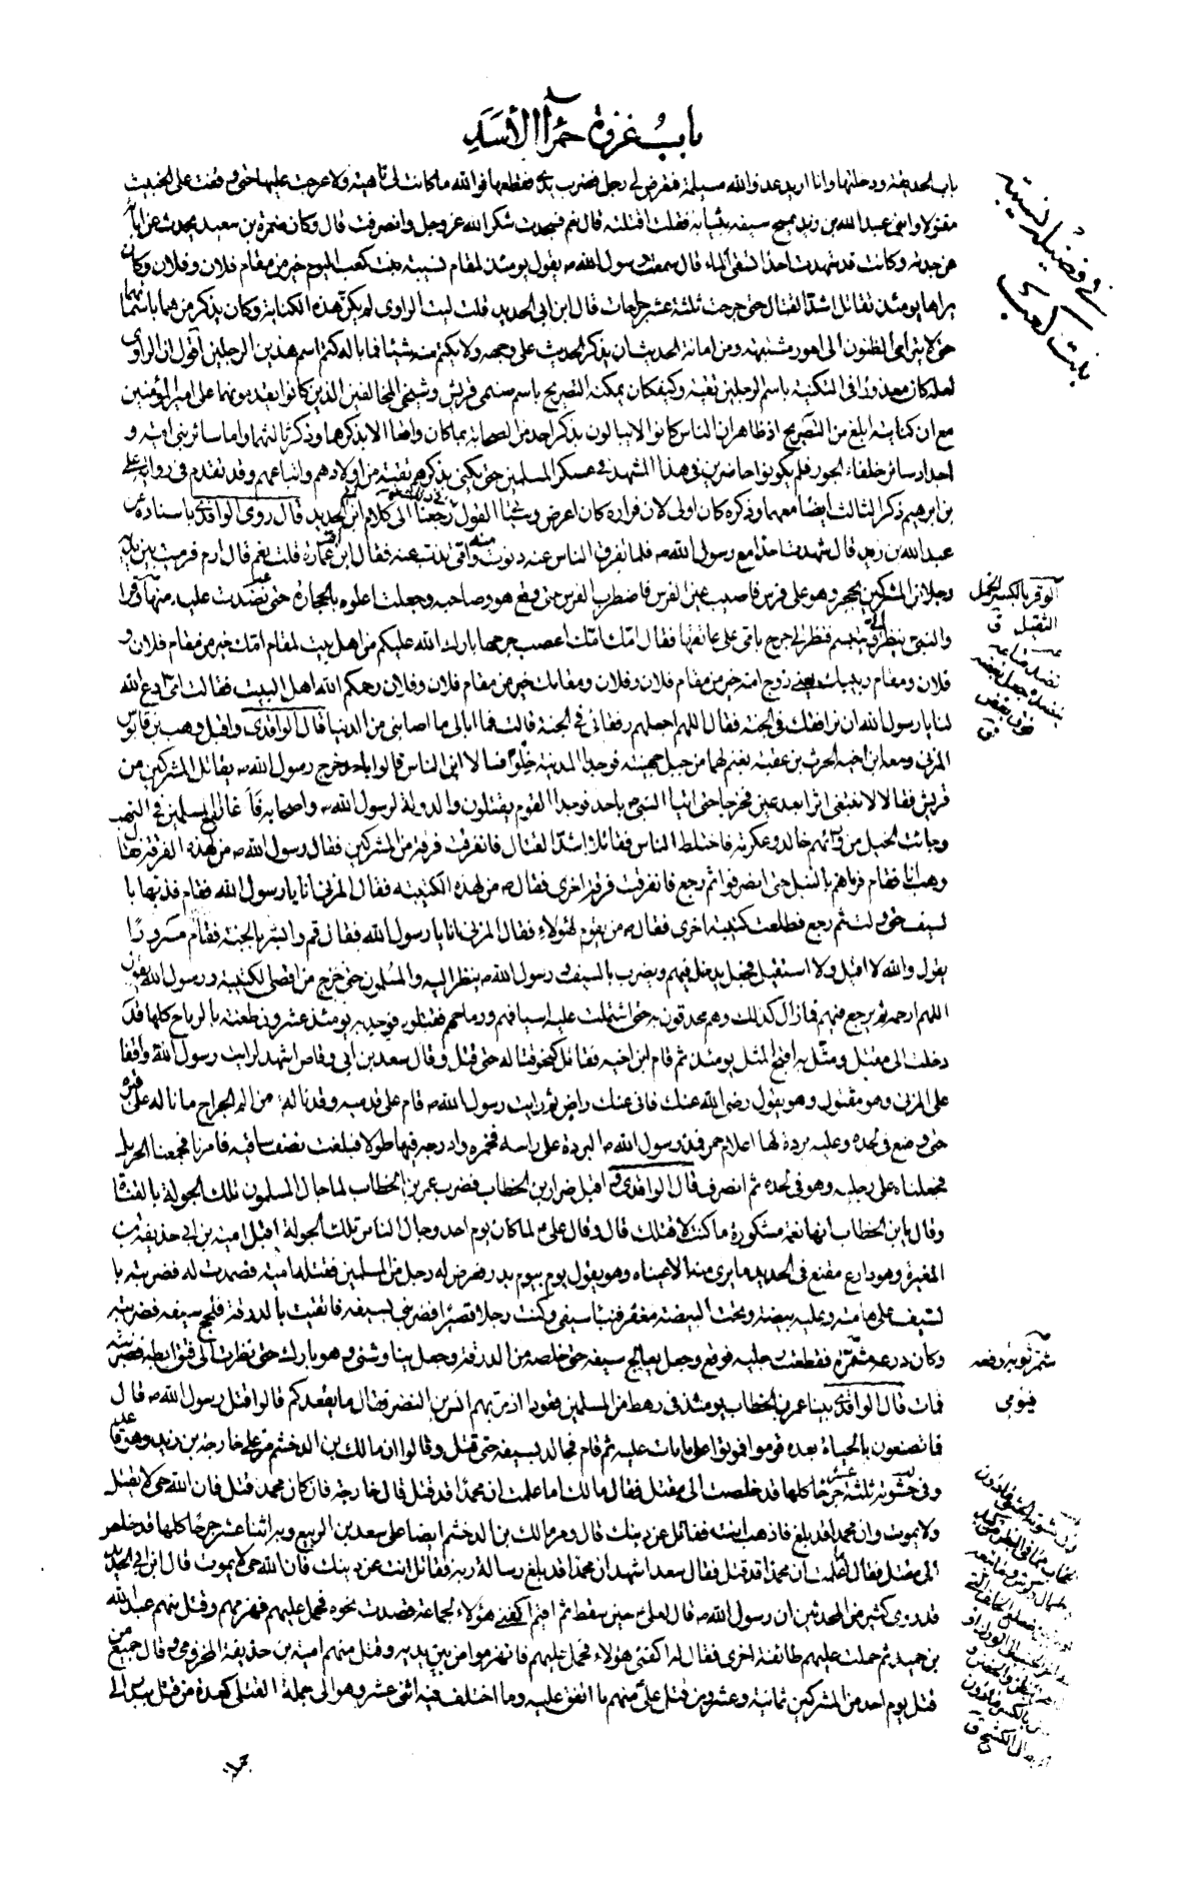 باب غزوة حمرآء الأسد
باب الحديقة ودخلتها وانا اريد عدو الله مسيلمة فعرض لي رجل فضرب يدي فقطعها فوالله ما كانت لي ناهية ولا عرجت عليها حتى وقفت على الخبيث
مقتولا وابني عبد الله بن زيد يمسح سيفه بثيابه فقلت اقتلته قال نعم فسجدت شكرا لله عز وجل وانصرفت قال وكان ضمرة بن سعيد يحدث عن ابائه
عن جدته وكانت قد شهدت احدا تسقى الماء قال سمعت رسول الله ص يقول يومئذ لمقام نسيبة بنت كعب اليوم خير من مقام فلان وفلان وكان
يراها يومئذ تقاتل اشد القتال حتى جرحت ثلثة عشر جراحات قال ابن ابي الحديد قلت ليت الراوى لم يكن هذه الكناية وكان يذكر من هما باسمهما
حتى لا يترامى الظنون الى امور مشتبهة ومن امانة الحديث ان يذكر الحديث على وجهه ولا يكتم منه شيئا فما باله كتم اسم هذين الرجلين اقول ان الراوى
لعله كان معذورا فى التكنية باسم الرجلين تقية وكيف كان يمكنه التصريح باسم صنمى قريش وشيخى المخالفين الذين كانوا يقدمونهما على امير المؤمنين
مع ان كنايته ابلغ من التصريح اذ ظاهر ان الناس كانوا لا يبالون بذكر احد من الصحابة بما كان واقعا الا بذكرهما وذكر ثالثهما واما سائر بنى امية و
اجداد سائر خلفاء الجور فلم يكونوا حاضرين فى هذا المشهد فى عسكر المسلمين حتى يكنى بذكرهم تقية من اولادهم واتباعهم وقد تقدم فى رواية على
بن ابرهيم ذكر الثالث ايضا معهما وذكره كان اولى لان فراره كان اعرض رجعنا الى كلام ابن ابي الحديد قال روى الواقدى باسناده عن
عبد الله بن زيد قال شهدت احدا مع رسول الله ص فلما تفرق الناس عنه دنوت منه وامى تذب عنه فقال ابن عمارة قلت نعم قال ارم فرميت بين يديه
رجلا من المشركين بحجر وهو على فرس فاصيب عين الفرس فاضطرب الفرس حتى وقع هو وصاحبه وجعلت اعلوه بالحجارة حتى نضدت عليه منها وقرا
والنبي ص ينظر الي ويتبسم فنظر الى جرح بامى على عاتقها فقال امك امك اعصب جرحها بارك الله عليكم من اهل بيت لمقام امك خير من مقام فلان و
فلان ومقام ربيبك يعنى زوج امه خير من مقام فلان وفلان ومقامك خير من مقام فلان وفلان رحمكم الله اهل البيت فقالت امى ادع الله
لنا يا رسول الله ان نرافقك فى الجنة فقال اللهم اجعلهم رفقائى فى الجنة قالت فما ابالى ما اصابنى من الدنيا قال الواقدى واقبل وهب بن قابوس
المزنى ومعه ابن اخيه الحرث بن عقبة بغنم لهما من جبل جهينة فوجدا المدينة خلوا فسالا اين الناس قالوا باحد خرج رسول الله ص يقاتل المشركين من
قريش فقالا لا نبتغى اثرا بعد عين فخرجا حتى اتيا النبي ص باحد فوجدا القوم يقتتلون والدولة لرسول الله ص واصحابه فاغارا مع المسلمين فى النهب
وجائت الخيل من ورائهم خالد وعكرمة فاختلط الناس فقاتلا اشد القتال فانفرقت فرقة من المشركين فقال رسول الله ص من لهذه الفرقة فقال
وهب انا فقام فرماهم بالنبل حتى انصرفوا ثم رجع فانفرقت فرقة اخرى فقال ص من لهذه الكتيبة فقال المزنى انا يا رسول الله فقام فذبها با
لسيف حتى ولت ثم رجع فطلعت كتيبة اخرى فقال ص من يقوم لهؤلاء فقال المزنى انا يا رسول الله فقال قم وابشر بالجنة فقام مسرورا
يقول والله لا اقيل ولا استقيل فجعل يدخل فيهم ويضرب بالسيف ورسول الله ص ينظر اليه والمسلمون حتى خرج من اقصى الكتيبة ورسول الله ص يقول
اللهم ارحمه ثم يرجع فيهم فما زال كذلك وهم محدقون به حتى اشتملت عليه اسيافهم ورماحهم فقتلوه فوجد به يومئذ عشرون طعنة بالرماح كلها قد
دخلت الى مقتل ومثل به اقبح المثل يومئذ ثم قام ابن اخيه فقاتل كنحو قتاله حتى قتل وقال سعد بن ابي وقاص اشهد لرايت رسول الله ص واقفا
على المزنى وهو مقتول وهو يقول رضى الله عنك فانى عنك راض ثم رايت رسول الله ص قام على قدميه وقد ناله من الم الجراح ما ناله على قبره
حتى وضع فى لحده وعليه بردة لها اعلام حمر فمد رسول الله ص البردة على راسه فخمره وادرجه فيها طولا فبلغت نصف ساقيه فامرنا فجمعنا الحرمل
فجعلناه على رجليه وهو فى لحده ثم انصرف قال الواقدى واقبل ضرار بن الخطاب فضرب عمر بن الخطاب لما جال المسلمون تلك الجولة بالقناة
وقال يا بن الخطاب انها نعمة مشكورة ما كنت لاقتلك قال وقال على ع لما كان يوم احد وجال الناس تلك الجولة اقبل امية بن ابي حذيفة بن
المغيرة وهو دارع مقنع فى الحديد ما يرى منه الا عيناه وهو يقول يوم بيوم بدر فعرض له رجل من المسلمين فقتله امية فصمدت له فضربته با
لسيف على هامته وعليه بيضة وتحت البيضة مغفر فنبا سيفى وكنت رجلا قصيرا فضربنى بسيفه فاتقيت بالدرقة فلحج سيفه فضربته
وكان درعه مشمرة فقطعت رجليه فوقع وجعل يعالج سيفه حتى خلصه من الدرقة وجعل يناوشنى وهو بارك حتى نظرت الى فتق ابطه فضربته
فمات قال الواقدى بينا عمر بن الخطاب يومئذ فى رهط من المسلمين قعودا اذ مر بهم انس بن النضر فقال ما يقعدكم قالوا قتل رسول الله ص قال
فما تصنعون بالحياة بعده قوموا فموتوا على ما مات عليه ثم قام فجالد بسيفه حتى قتل وقالوا ان مالك بن الدخشم مر على خارجة بن زيد وهو قاعد
وفى حشوته ثلثة عشر جرحا كلها قد خلصت الى مقتل فقال مالك اما علمت ان محمدا قد قتل قال خارجة فان كان محمد قتل فان الله حى لا يقتل
ولا يموت وان محمدا قد بلغ فاذهب انت فقاتل عن دينك قال ومر مالك بن الدخشم ايضا على سعد بن الربيع وبه اثنا عشر جرحا كلها قد خلص
الى مقتل فقال اعلمت ان محمدا قد قتل فقال سعد اشهد ان محمدا قد بلغ رسالة ربه فقاتل انت عن دينك فان الله حى لا يموت قال ابن ابي الحديد
قد روى كثير من المحدثين ان رسول الله ص قال لعلى ع حين سقط ثم اقيم اكفنى هؤلاء لجماعة قصدت نحوه فحمل عليهم فهزمهم وقتل منهم عبد الله
بن حميد ثم حملت عليهم طائفة اخرى فقال له اكفنى هؤلاء فحمل عليهم فانهزموا من بين يديه وقتل منهم امية بن حذيفة المخزومى قال جميع من
قتل يوم احد من المشركين ثمانية وعشرون قتل على ع منهم ما اتفق عليه وما اختلف فيه اثنى عشر وهو الى جملة القتلى كعدة من قتل ببدر الى
في فضيلة نسيبة
بنت كعب
الوقر بالكسر الحمل
الثقيل ق
نضد متاعه
ينضده جعل بعضه
فوق بعض
ق
شمر ثوبه رفعه
فيومي
جملة